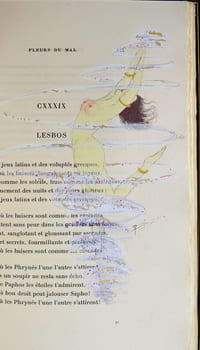 FLEURS DU MAL
CXXXIX
LESBOS
jeux latins et des voluptés grecques,
où les baisers, languissants ou joyeux,
comme les soleils, frais comme les pastèques,
nement des nuits et des jours glorieux
jeux latins et des voluptés grecques,
où les baisers sont comme les cascades
tent sans peur dans les gouffres sans fonds
nt, sanglotant et gloussant par saccades,
et secrets, fourmillants et profonds;
où les baisers sont comme les cascades!
où les Phrynés l'une l'autre s'attirent,
un soupir ne resta sans écho,
de Paphos les étoiles t'admirent,
bon droit peut jalouser Sapho!
où les Phrynés l'une l'autre s'attirent!